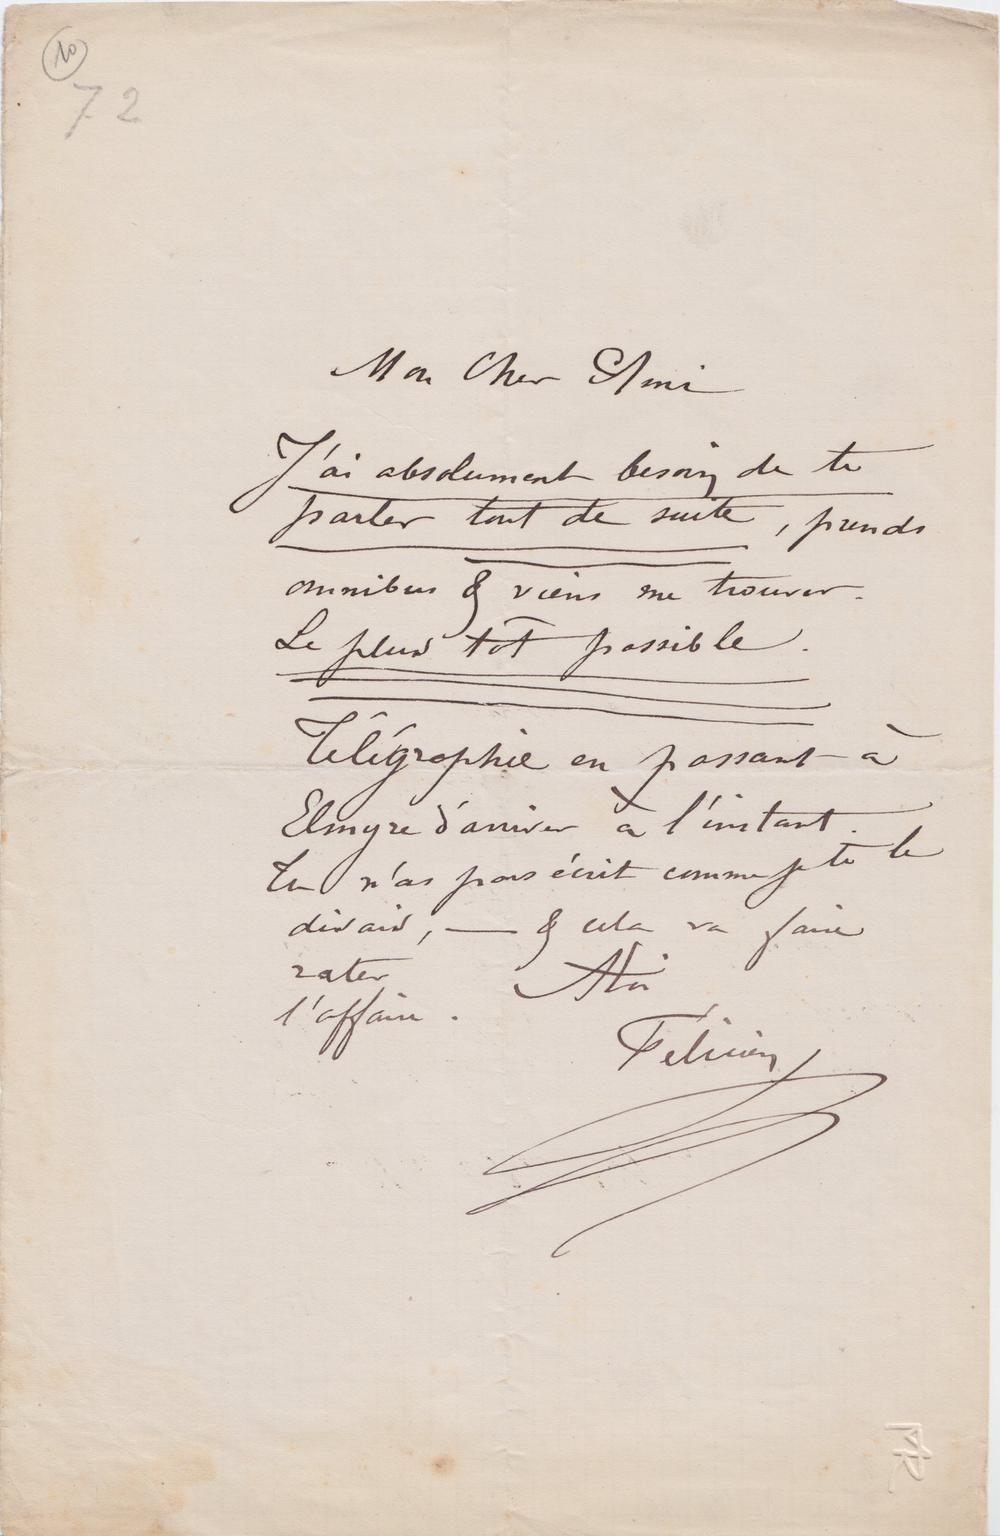 10
72
Mon Cher Ami
J'ai absolument besoin de te
parler tout de suite, prends
omnibus & viens me trouver.
Le plus tôt possible.
Télégraphie en passant à
Elmyre d'arriver à l'instant.
Tu n'as pas écrit comme je te le
disais, — & cela va faire
rater
l'affaire.
A toi
Félicien
FR